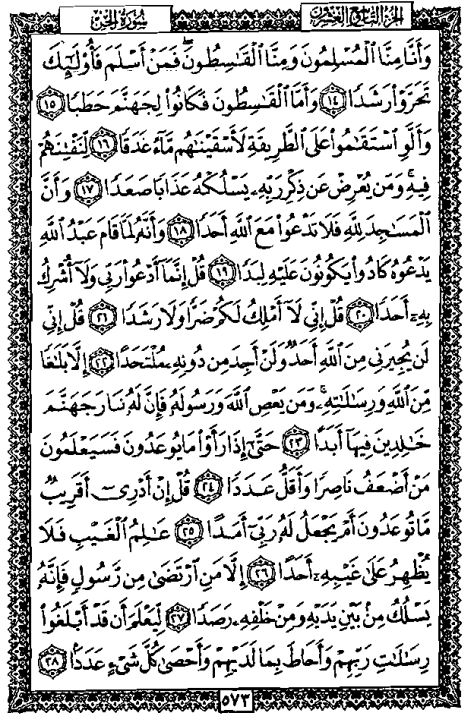 الجزء التاسع والعشرون
سُورَةُ الجِنّ
وَأَنَّا مِنَّا ٱلْمُسْلِمُونَ وَمِنَّا ٱلْقَٰسِطُونَ ۖ فَمَنْ أَسْلَمَ فَأُو۟لَٰٓئِكَ
تَحَرَّوْا۟ رَشَدًا ١٤ وَأَمَّا ٱلْقَٰسِطُونَ فَكَانُوا۟ لِجَهَنَّمَ حَطَبًا ١٥
وَأَلَّوِ ٱسْتَقَٰمُوا۟ عَلَى ٱلطَّرِيقَةِ لَأَسْقَيْنَٰهُم مَّآءً غَدَقًا ١٦ لِّنَفْتِنَهُمْ
فِيهِ ۚ وَمَن يُعْرِضْ عَن ذِكْرِ رَبِّهِۦ يَسْلُكْهُ عَذَابًا صَعَدًا ١٧ وَأَنَّ
ٱلْمَسَٰجِدَ لِلَّهِ فَلَا تَدْعُوا۟ مَعَ ٱللَّهِ أَحَدًا ١٨ وَأَنَّهُۥ لَمَّا قَامَ عَبْدُ ٱللَّهِ
يَدْعُوهُ كَادُوا۟ يَكُونُونَ عَلَيْهِ لِبَدًا ١٩ قُلْ إِنَّمَآ أَدْعُوا۟ رَبِّى وَلَآ أُشْرِكُ
بِهِۦٓ أَحَدًا ٢٠ قُلْ إِنِّى لَآ أَمْلِكُ لَكُمْ ضَرًّا وَلَا رَشَدًا ٢١ قُلْ إِنِّى
لَن يُجِيرَنِى مِنَ ٱللَّهِ أَحَدٌ وَلَنْ أَجِدَ مِن دُونِهِۦ مُلْتَحَدًا ٢٢ إِلَّا بَلَٰغًا
مِّنَ ٱللَّهِ وَرِسَٰلَٰتِهِۦ ۚ وَمَن يَعْصِ ٱللَّهَ وَرَسُولَهُۥ فَإِنَّ لَهُۥ نَارَ جَهَنَّمَ
خَٰلِدِينَ فِيهَآ أَبَدًا ٢٣ حَتَّىٰٓ إِذَا رَأَوْا۟ مَا يُوعَدُونَ فَسَيَعْلَمُونَ
مَنْ أَضْعَفُ نَاصِرًا وَأَقَلُّ عَدَدًا ٢٤ قُلْ إِنْ أَدْرِىٓ أَقَرِيبٌ
مَّا تُوعَدُونَ أَمْ يَجْعَلُ لَهُۥ رَبِّىٓ أَمَدًا ٢٥ عَٰلِمُ ٱلْغَيْبِ فَلَا
يُظْهِرُ عَلَىٰ غَيْبِهِۦٓ أَحَدًا ٢٦ إِلَّا مَنِ ٱرْتَضَىٰ مِن رَّسُولٍ فَإِنَّهُۥ
يَسْلُكُ مِنۢ بَيْنِ يَدَيْهِ وَمِنْ خَلْفِهِۦ رَصَدًا ٢٧ لِّيَعْلَمَ أَن قَدْ أَبْلَغُوا۟
رِسَٰلَٰتِ رَبِّهِمْ وَأَحَاطَ بِمَا لَدَيْهِمْ وَأَحْصَىٰ كُلَّ شَىْءٍ عَدَدًۢا ٢٨
٥٧٣